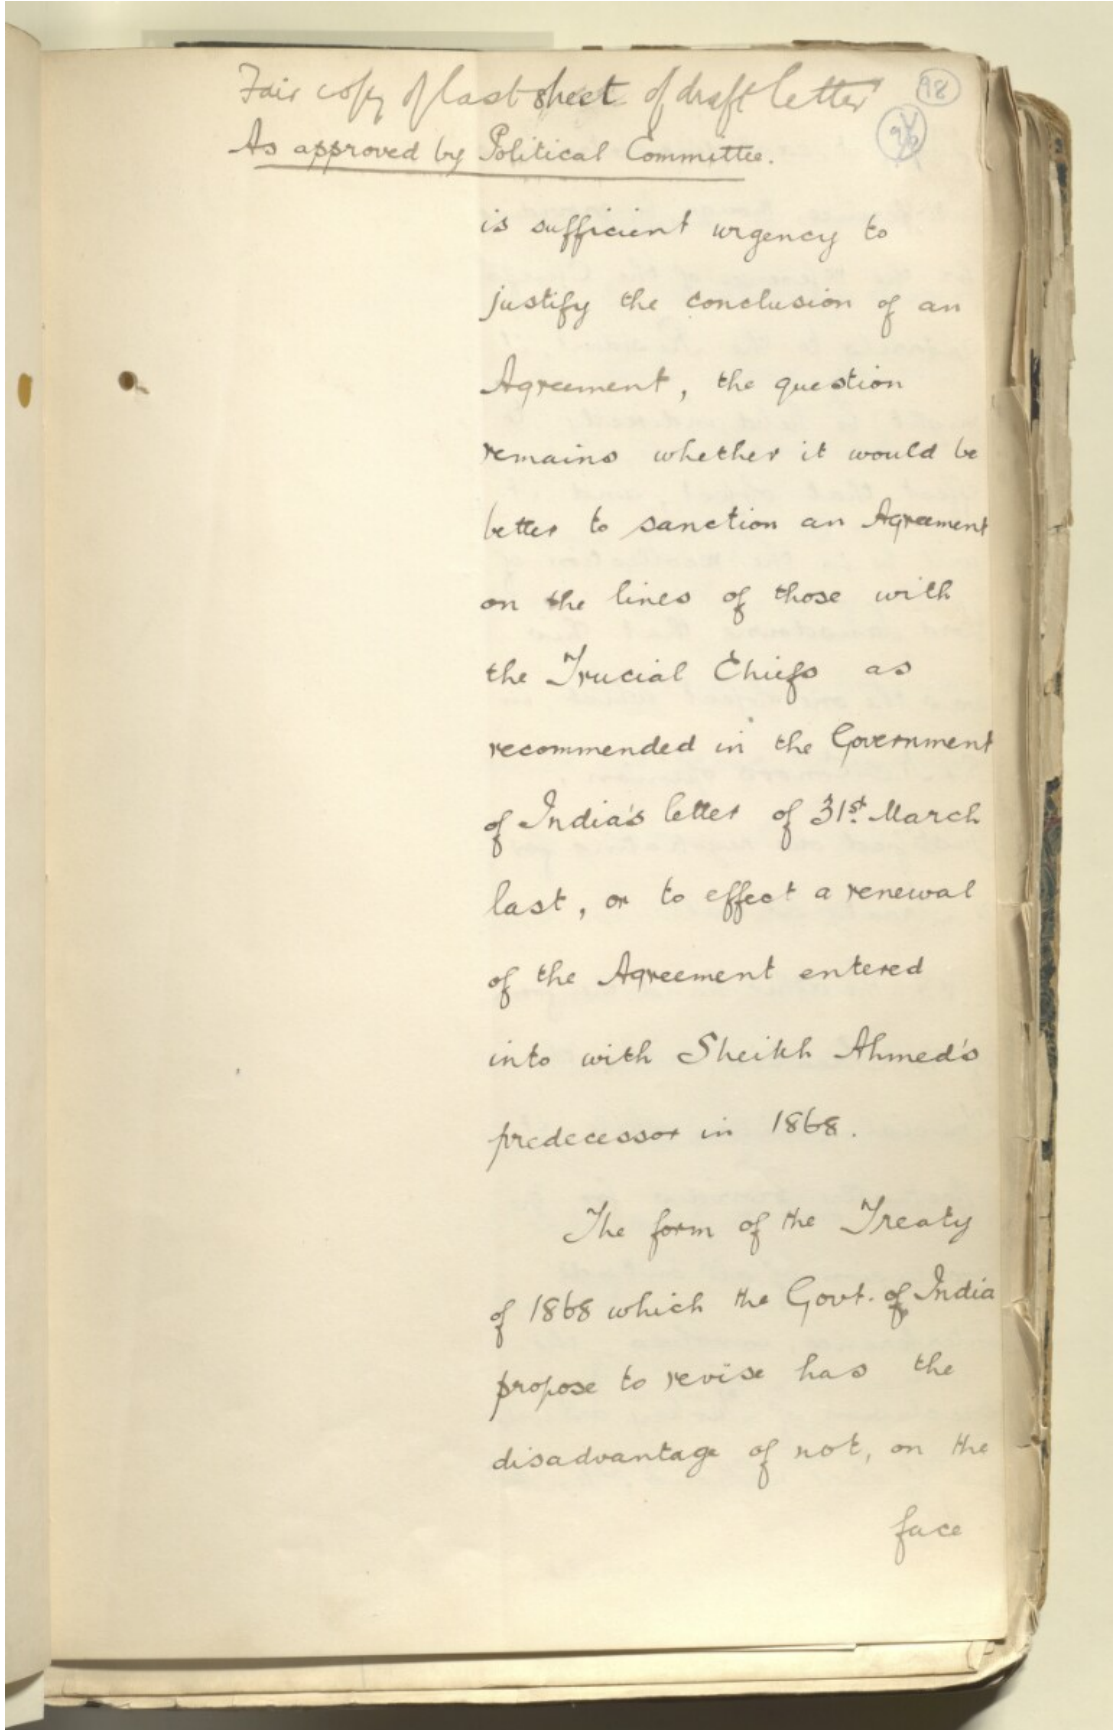 Fair copy of last sheet of draft letter
98
As approved by Political Committee.
is sufficient urgency to
justify the conclusion of an
Agreement, the question
remains whether it would be
better to sanction an Agreement
on the lines of those with
the Trucial Chiefs as
recommended in the Government
of India's letter of 31st March
last, or to effect a renewal
of the Agreement entered
into with Sheikh Ahmed's
predecessor in 1868.
The form of the Treaty
of 1868 which the Govt. of India
propose to revise has the
disadvantage of not, on the
face